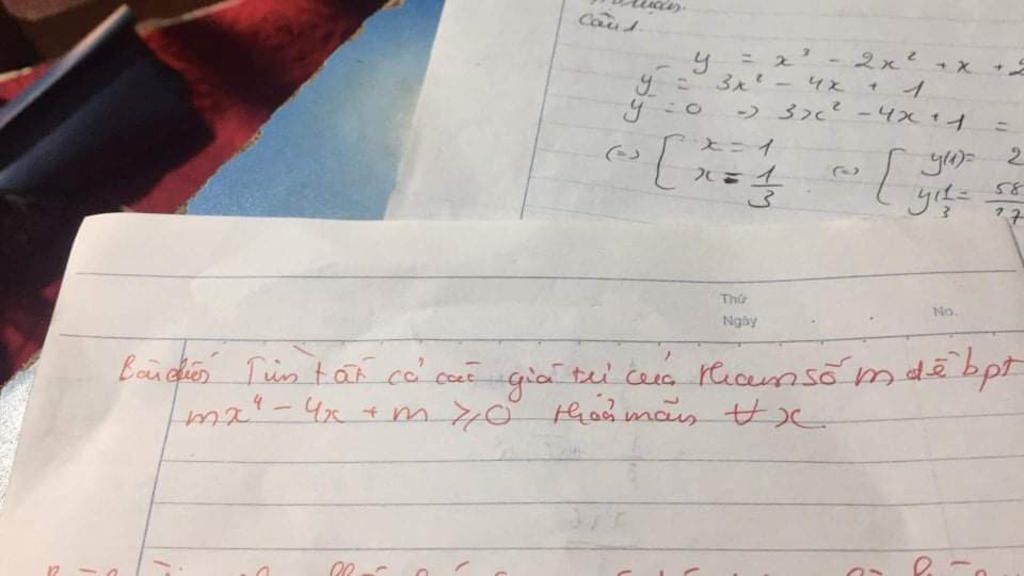 Câu 1.
y = x³ - 2x² + x + 2
y' = 3x² - 4x + 1
y' = 0 => 3x² - 4x + 1 =
(=) [ x = 1 (=) [ y(1) = 2
x = 1/3 y(1/3 = 58/27
Thứ
Ngày No.
Tìm tất cả các giá trị của tham số m để bpt
mx⁴ - 4x + m ⩾ 0 thoả mãn ∀ x.